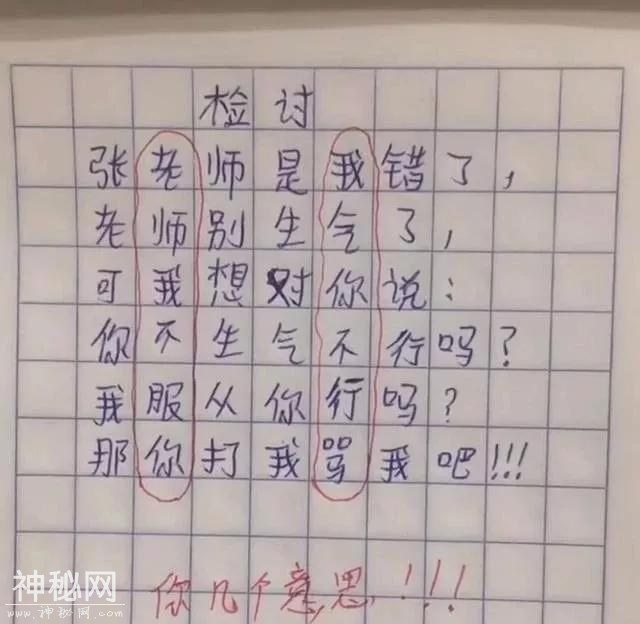 检讨
张老师是我错了，
老师别生气了，
可我想对你说：
你不生气不行吗？
我服从你行吗？
那你打我骂我吧!!!
你几个意思!!!
神秘网
WWW.神秘网.COM